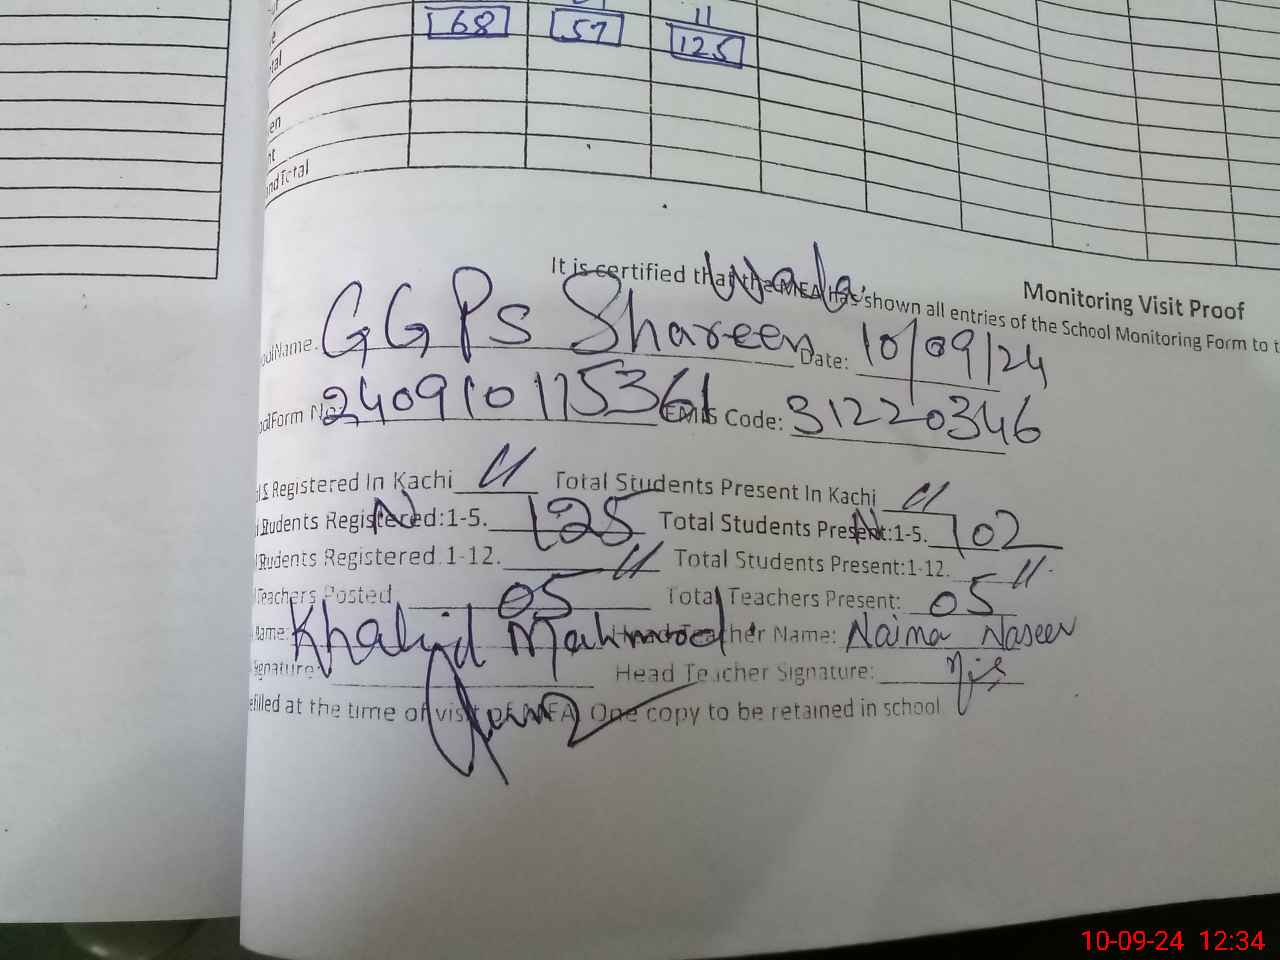 68 57 11
125
en
nt
ndTotal
Monitoring Visit Proof
It is certified that the MEA has shown all entries of the School Monitoring Form to t
Wala
oolName. GGPS Shareen Date: 10/09/24
oolForm No: 240910115361 EMIS Code: 31220346
Registered In Kachi 11 Total Students Present In Kachi 11
Students Registered:1-5. N 125 Total Students Present:1-5. N 102
Students Registered 1-12. 11 Total Students Present:1-12. 11
Teachers Posted 05 Total Teachers Present: 05
Name: Khalid Mahmood Head Teacher Name: Naima Naseer
Signature: Head Teacher Signature:
efilled at the time of visit of MEA One copy to be retained in school
10-09-24 12:34